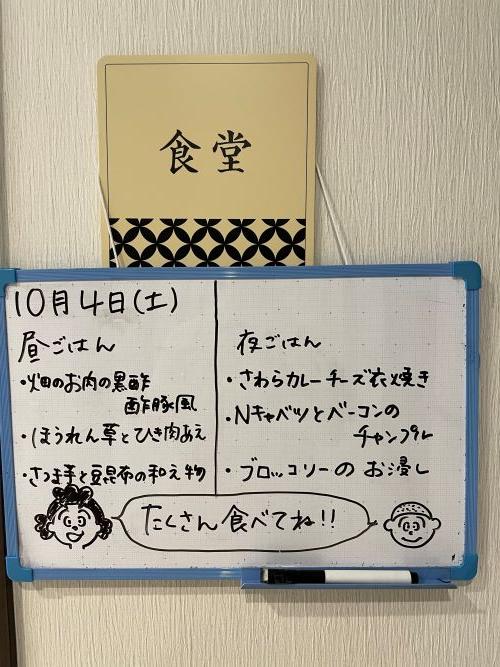 食堂
10月4日(土)
昼ごはん
・畑のお肉の黒酢
酢豚風
・ほうれん草とひき肉あえ
・さつま芋と豆昆布の和え物
夜ごはん
・さわらカレーチーズ衣焼き
・Nキャベツとベーコンの
チャンプル
・ブロッコリーのお浸し
たくさん食べてね!!